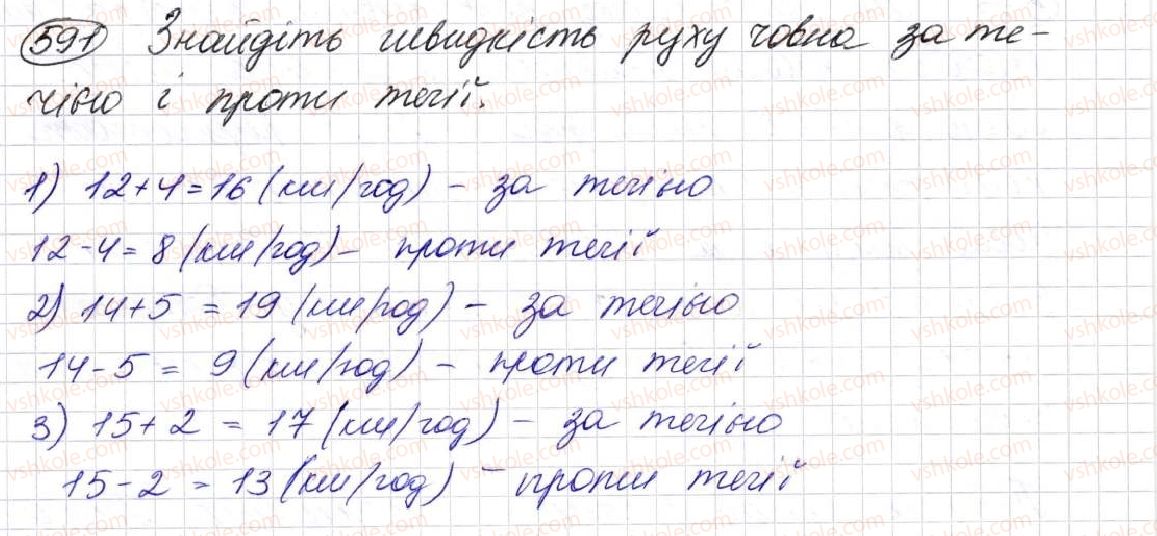 591 Знайдіть швидкість руху човна за те-
чією і проти течії.
1) 12+4=16 (км/год) - за течією
12-4=8 (км/год) - проти течії
2) 14+5 = 19 (км/год) - за течією
14-5 = 9 (км/год) - проти течії
3) 15+2 = 17 (км/год) - за течією
15-2 = 13 (км/год) - проти течії
vshkole.com